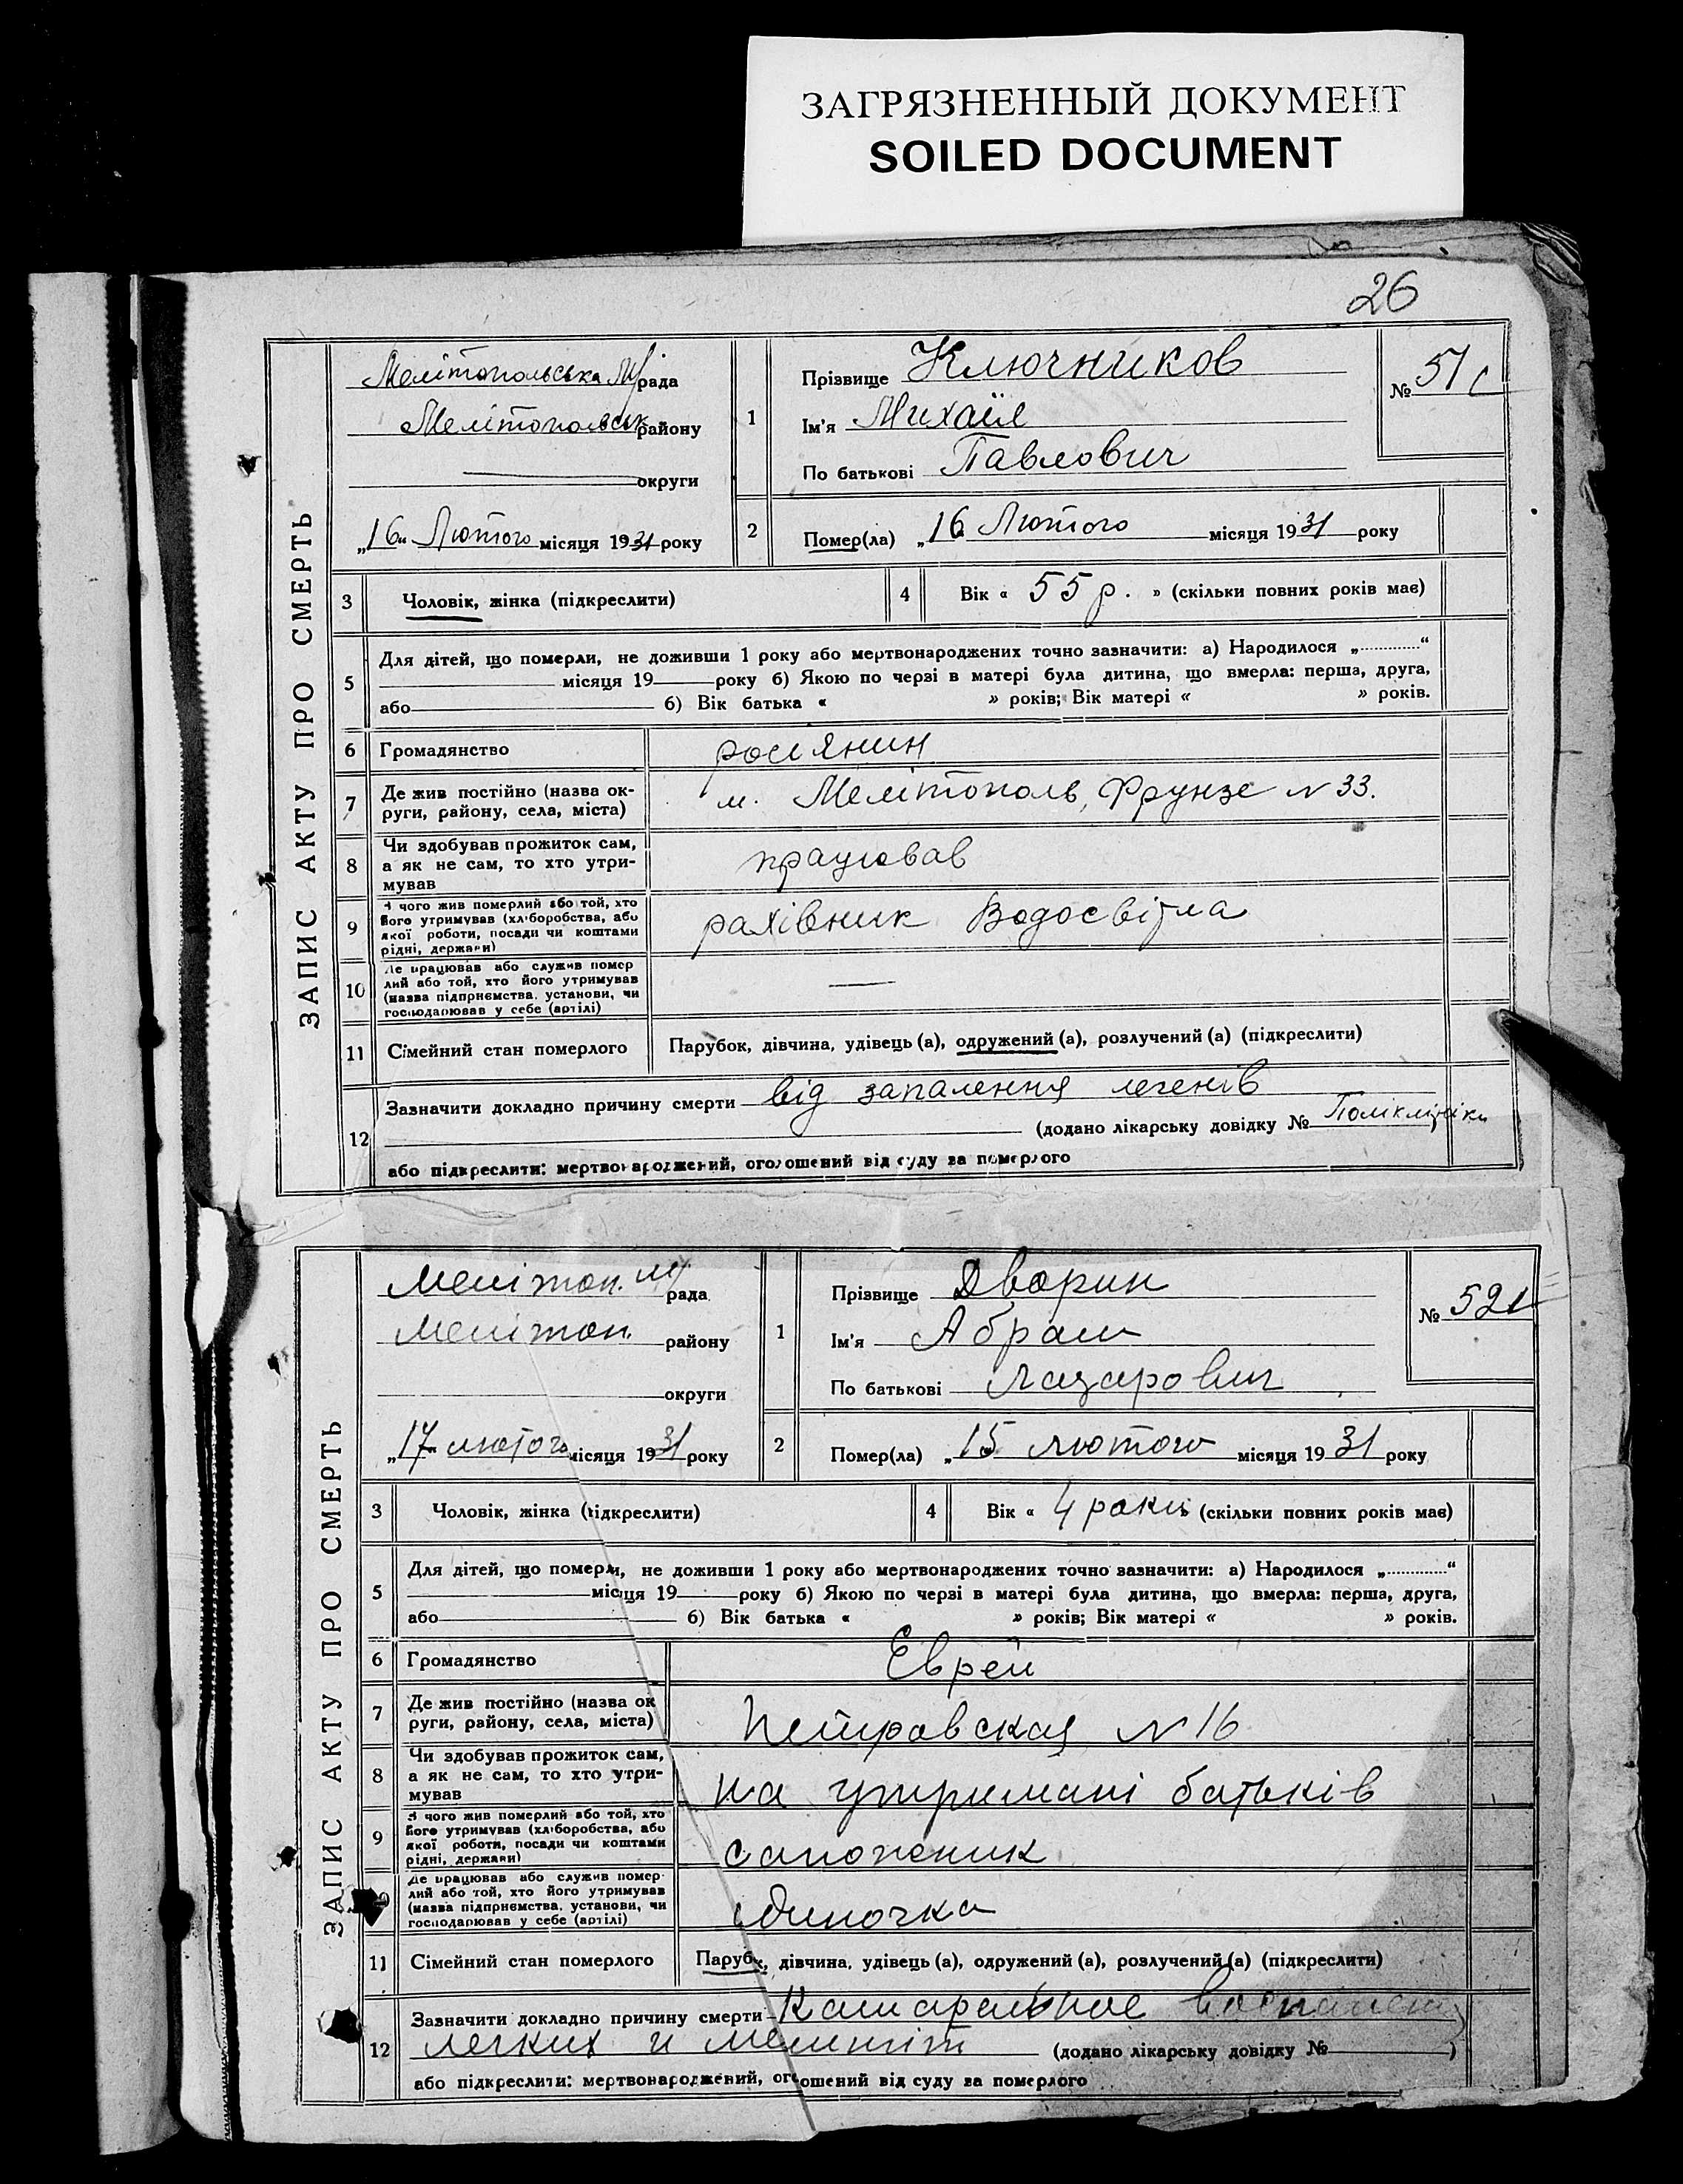 ЗАГРЯЗНЕННЫЙ ДОКУМЕНТ
SOILED DOCUMENT
26
ЗАПИС АКТУ ПРО СМЕРТЬ
Мелітопольська М/рада
Мелітопольськ району
округи
„16“ Лютого місяця 1931 року
1
Прізвище Ключников
Ім'я Михаіл
По батькові Павлович
№ 51
2
Помер(ла) „16 Лютого місяця 1931 року
3 Чоловік, жінка (підкреслити)
4 Вік « 55 р. » (скільки повних років має)
5
Для дітей, що померли, не доживши 1 року або мертвонароджених точно зазначити: а) Народилося „............“
місяця 19 року б) Якою по черзі в матері була дитина, що вмерла: перша, друга,
або б) Вік батька « » років; Вік матері « » років.
6 Громадянство росіянин
7 Де жив постійно (назва ок-
руги, району, села, міста)
м. Мелітополь, Фрунзе № 33.
8 Чи здобував прожиток сам,
а як не сам, то хто утри-
мував
працював
9 З чого жив померлий або той, хто
його утримував (хліборобства, або
якої роботи, посади чи коштами
рідні, держави)
рахівник Водосвітла
10 Де працював або служив помер
лий або той, хто його утримував
(назва підприємства, установи, чи
господарював у себе (артілі)
—
11 Сімейний стан померлого Парубок, дівчина, удівець (а), одружений (а), розлучений (а) (підкреслити)
12 Зазначити докладно причину смерти від запалення легенів
(додано лікарську довідку № Поліклініки)
або підкреслити: мертвонароджений, оголошений від суду за померлого
ЗАПИС АКТУ ПРО СМЕРТЬ
Мелітоп. м/ рада
Мелітоп. району
округи
„17 лютого місяця 1931 року
1
Прізвище Дворин
Ім'я Абрам
По батькові Лазарович
№ 52
2
Помер(ла) „15 лютого місяця 1931 року
3 Чоловік, жінка (підкреслити)
4 Вік « 4 роки (скільки повних років має)
5
Для дітей, що померли, не доживши 1 року або мертвонароджених точно зазначити: а) Народилося „............“
місяця 19 року б) Якою по черзі в матері була дитина, що вмерла: перша, друга,
або б) Вік батька « » років; Вік матері « » років.
6 Громадянство Еврей
7 Де жив постійно (назва ок
руги, району, села, міста)
Петровская № 16
8 Чи здобував прожиток сам,
а як не сам, то хто утри-
мував
на утримані батьків
9 З чого жив померлий або той, хто
його утримував (хліборобства, або
якої роботи, посади чи коштами
рідні, держави)
сапожник
Де працював або служив помер-
лий або той, хто його утримував
(назва підприємства, установи, чи
господарював у себе (артілі)
одиночка
11 Сімейний стан померлого Парубк, дівчина, удівець (а), одружений (а), розлучений (а) (підкреслити)
12 Зазначити докладно причину смерти Катаральное воспален
легких и менингіт (додано лікарську довідку № )
або підкреслити: мертвонароджений, оголошений від суду за померлого